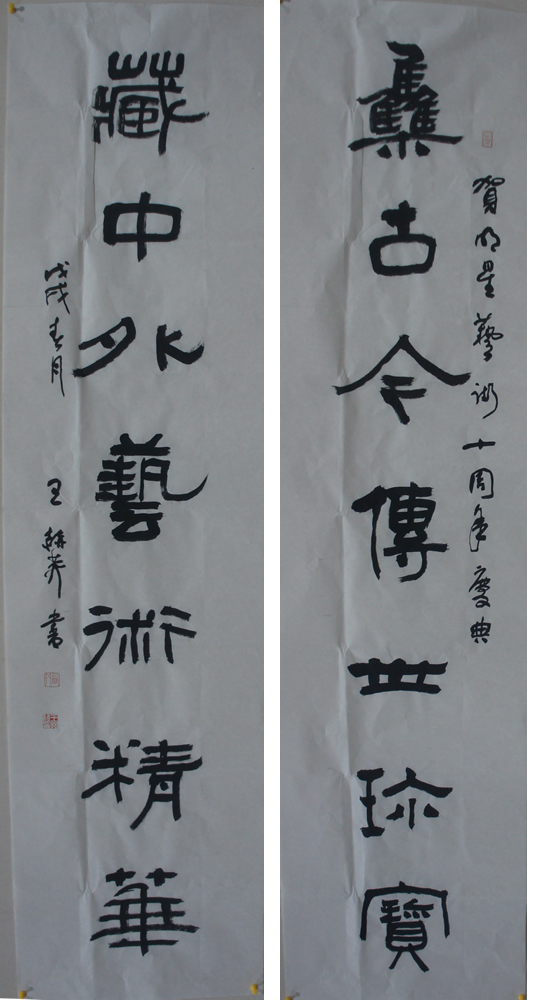 賀明星藝術十周年慶典
雧古今傳世珎寶
藏中外藝術精華
戊戌春月 王 書